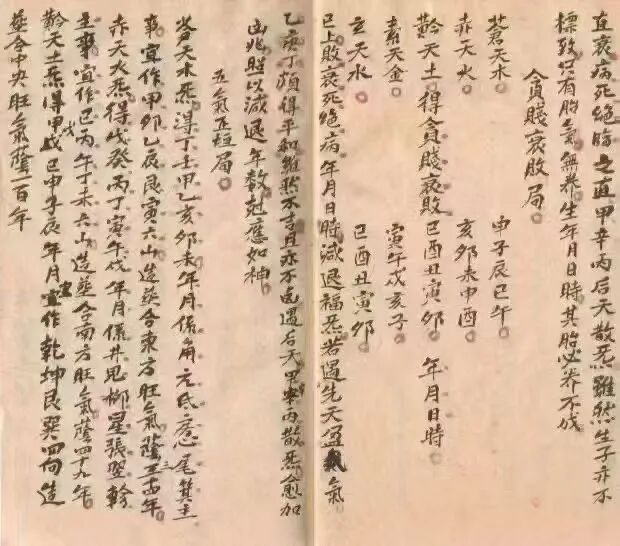 直衰病死絕臨之直甲辛丙后天散炁雖然生子亦不
標致只有胎氣無養生年月日時其胎必养不成
貪賤衰敗局
蒼天木 申子辰巳午
赤天火 亥卯未申酉
黅天土 得貪賤衰敗 巳酉丑寅卯 年月日時
素天金 寅午戌亥子
玄天水 巳酉丑寅卯
已上敗衰死絕病年月日時減退福炁若遇先天盈氣
乙庚丁頗得平和雖然不吉且亦不凶遇后天甲辛丙散炁愈加
凶兆照以減退年数尅應如神
五氣正短局
蒼天木炁得丁壬甲乙亥卯未年月係角亢氐房心尾箕主
事宜作甲卯乙辰艮寅六山造塟合東方旺氣蔭三十四年
赤天火炁得戊癸丙丁寅午戌年月係井鬼柳星張翌軫
主事宜作巳丙午丁未六山造塟合南方旺氣蔭四十九年
黅天土炁得甲戊己申子辰年月宜作乾坤艮巽四向造
塟合中央旺氣蔭一百年